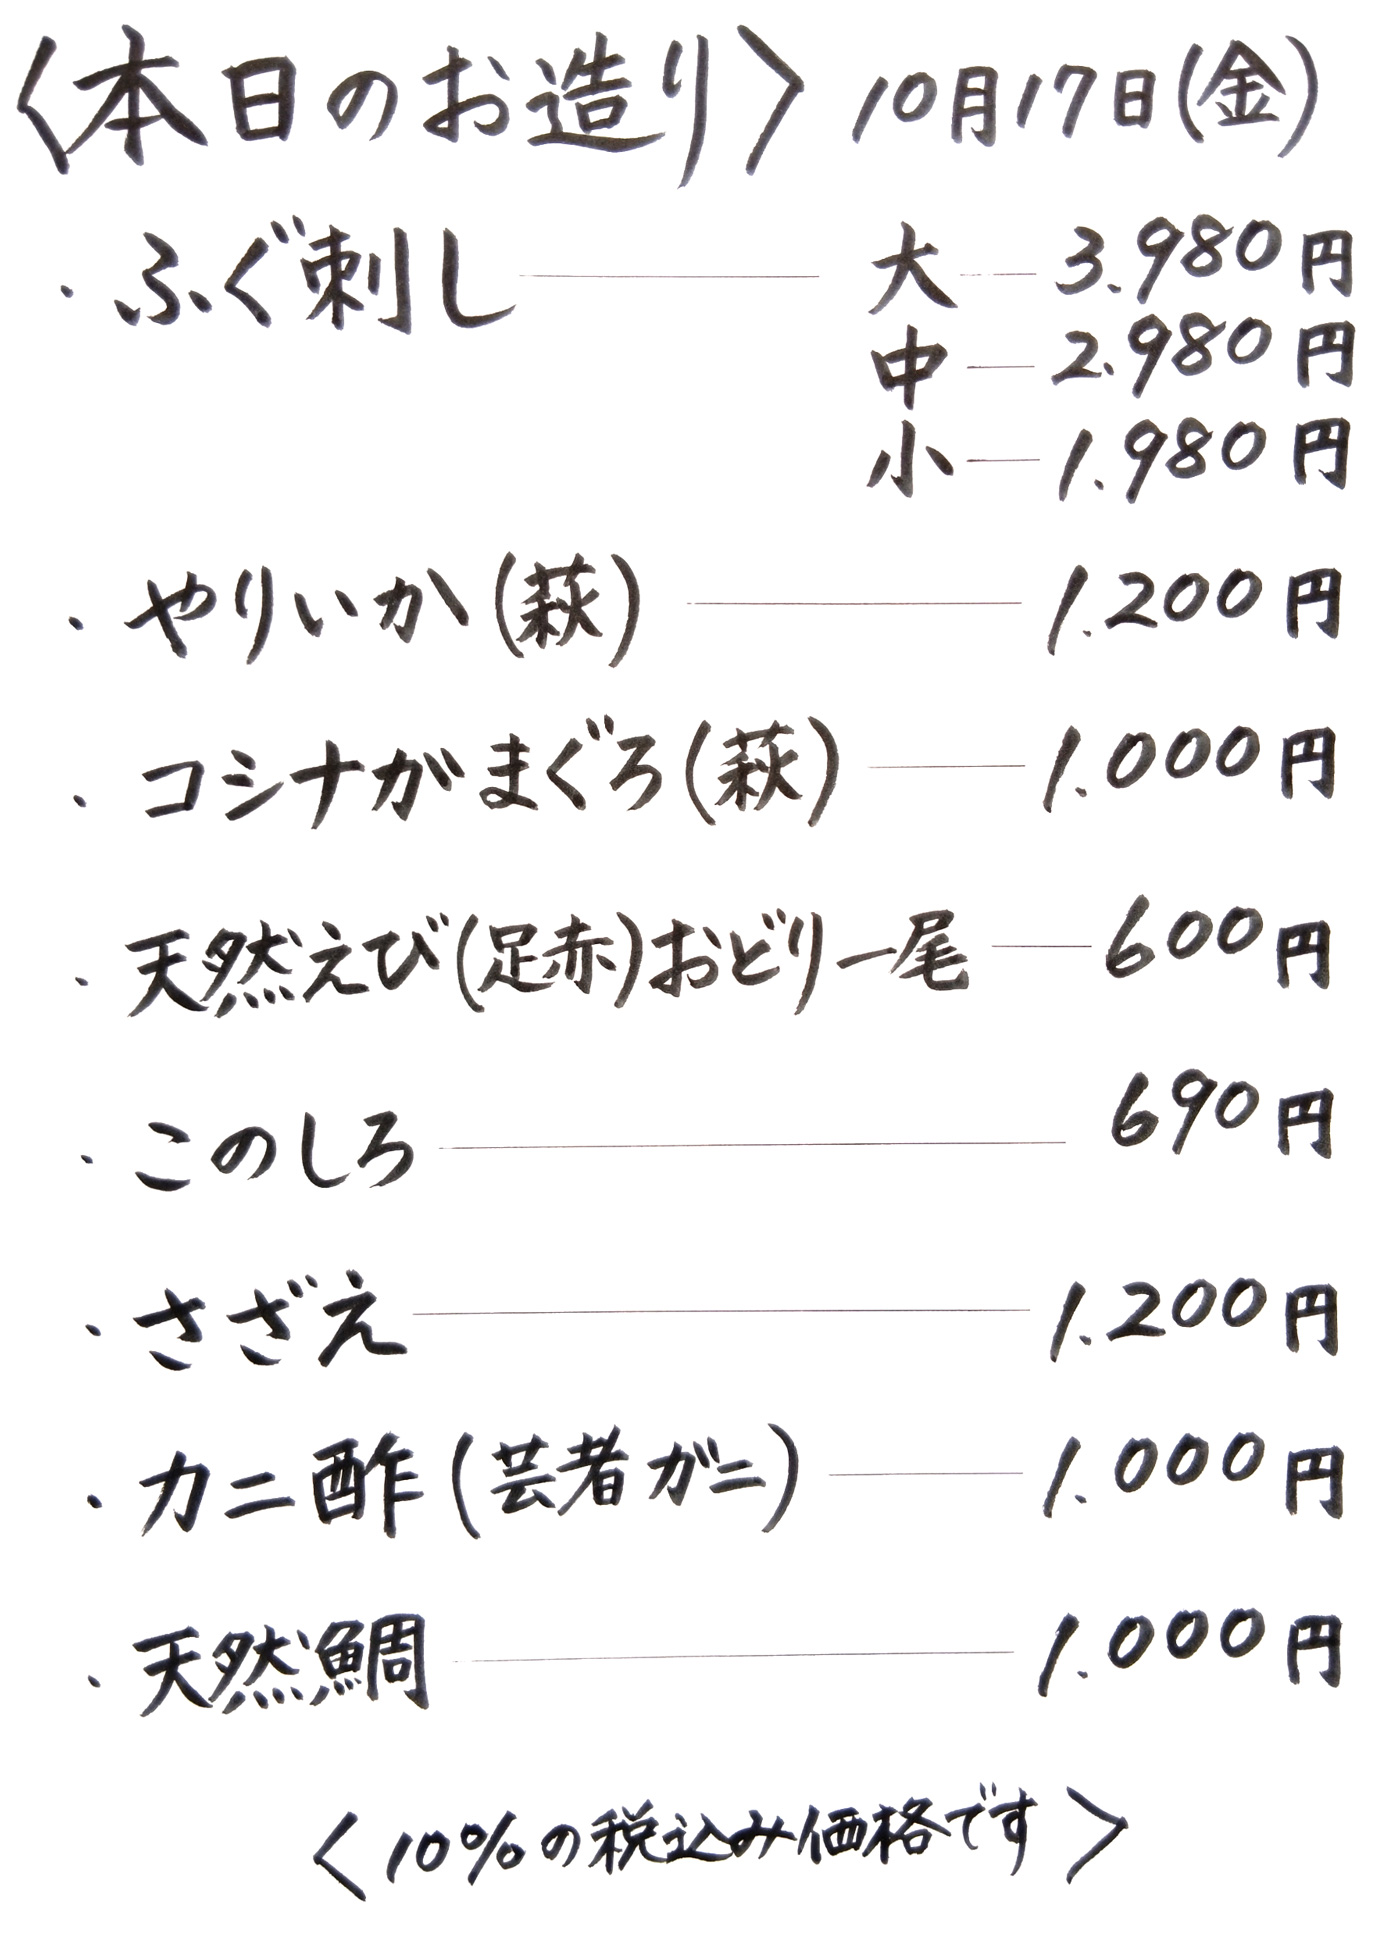 〈本日のお造り〉 10月17日(金)
・ふぐ刺し 大 3.980円
中 2.980円
小 1.980円
・やりいか(萩) 1.200円
・コシナガまぐろ(萩) 1.000円
・天然えび(足赤)おどり一尾 600円
・このしろ 690円
・さざえ 1.200円
・カニ酢(芸者ガニ) 1.000円
・天然鯛 1.000円
〈10%の税込み価格です〉